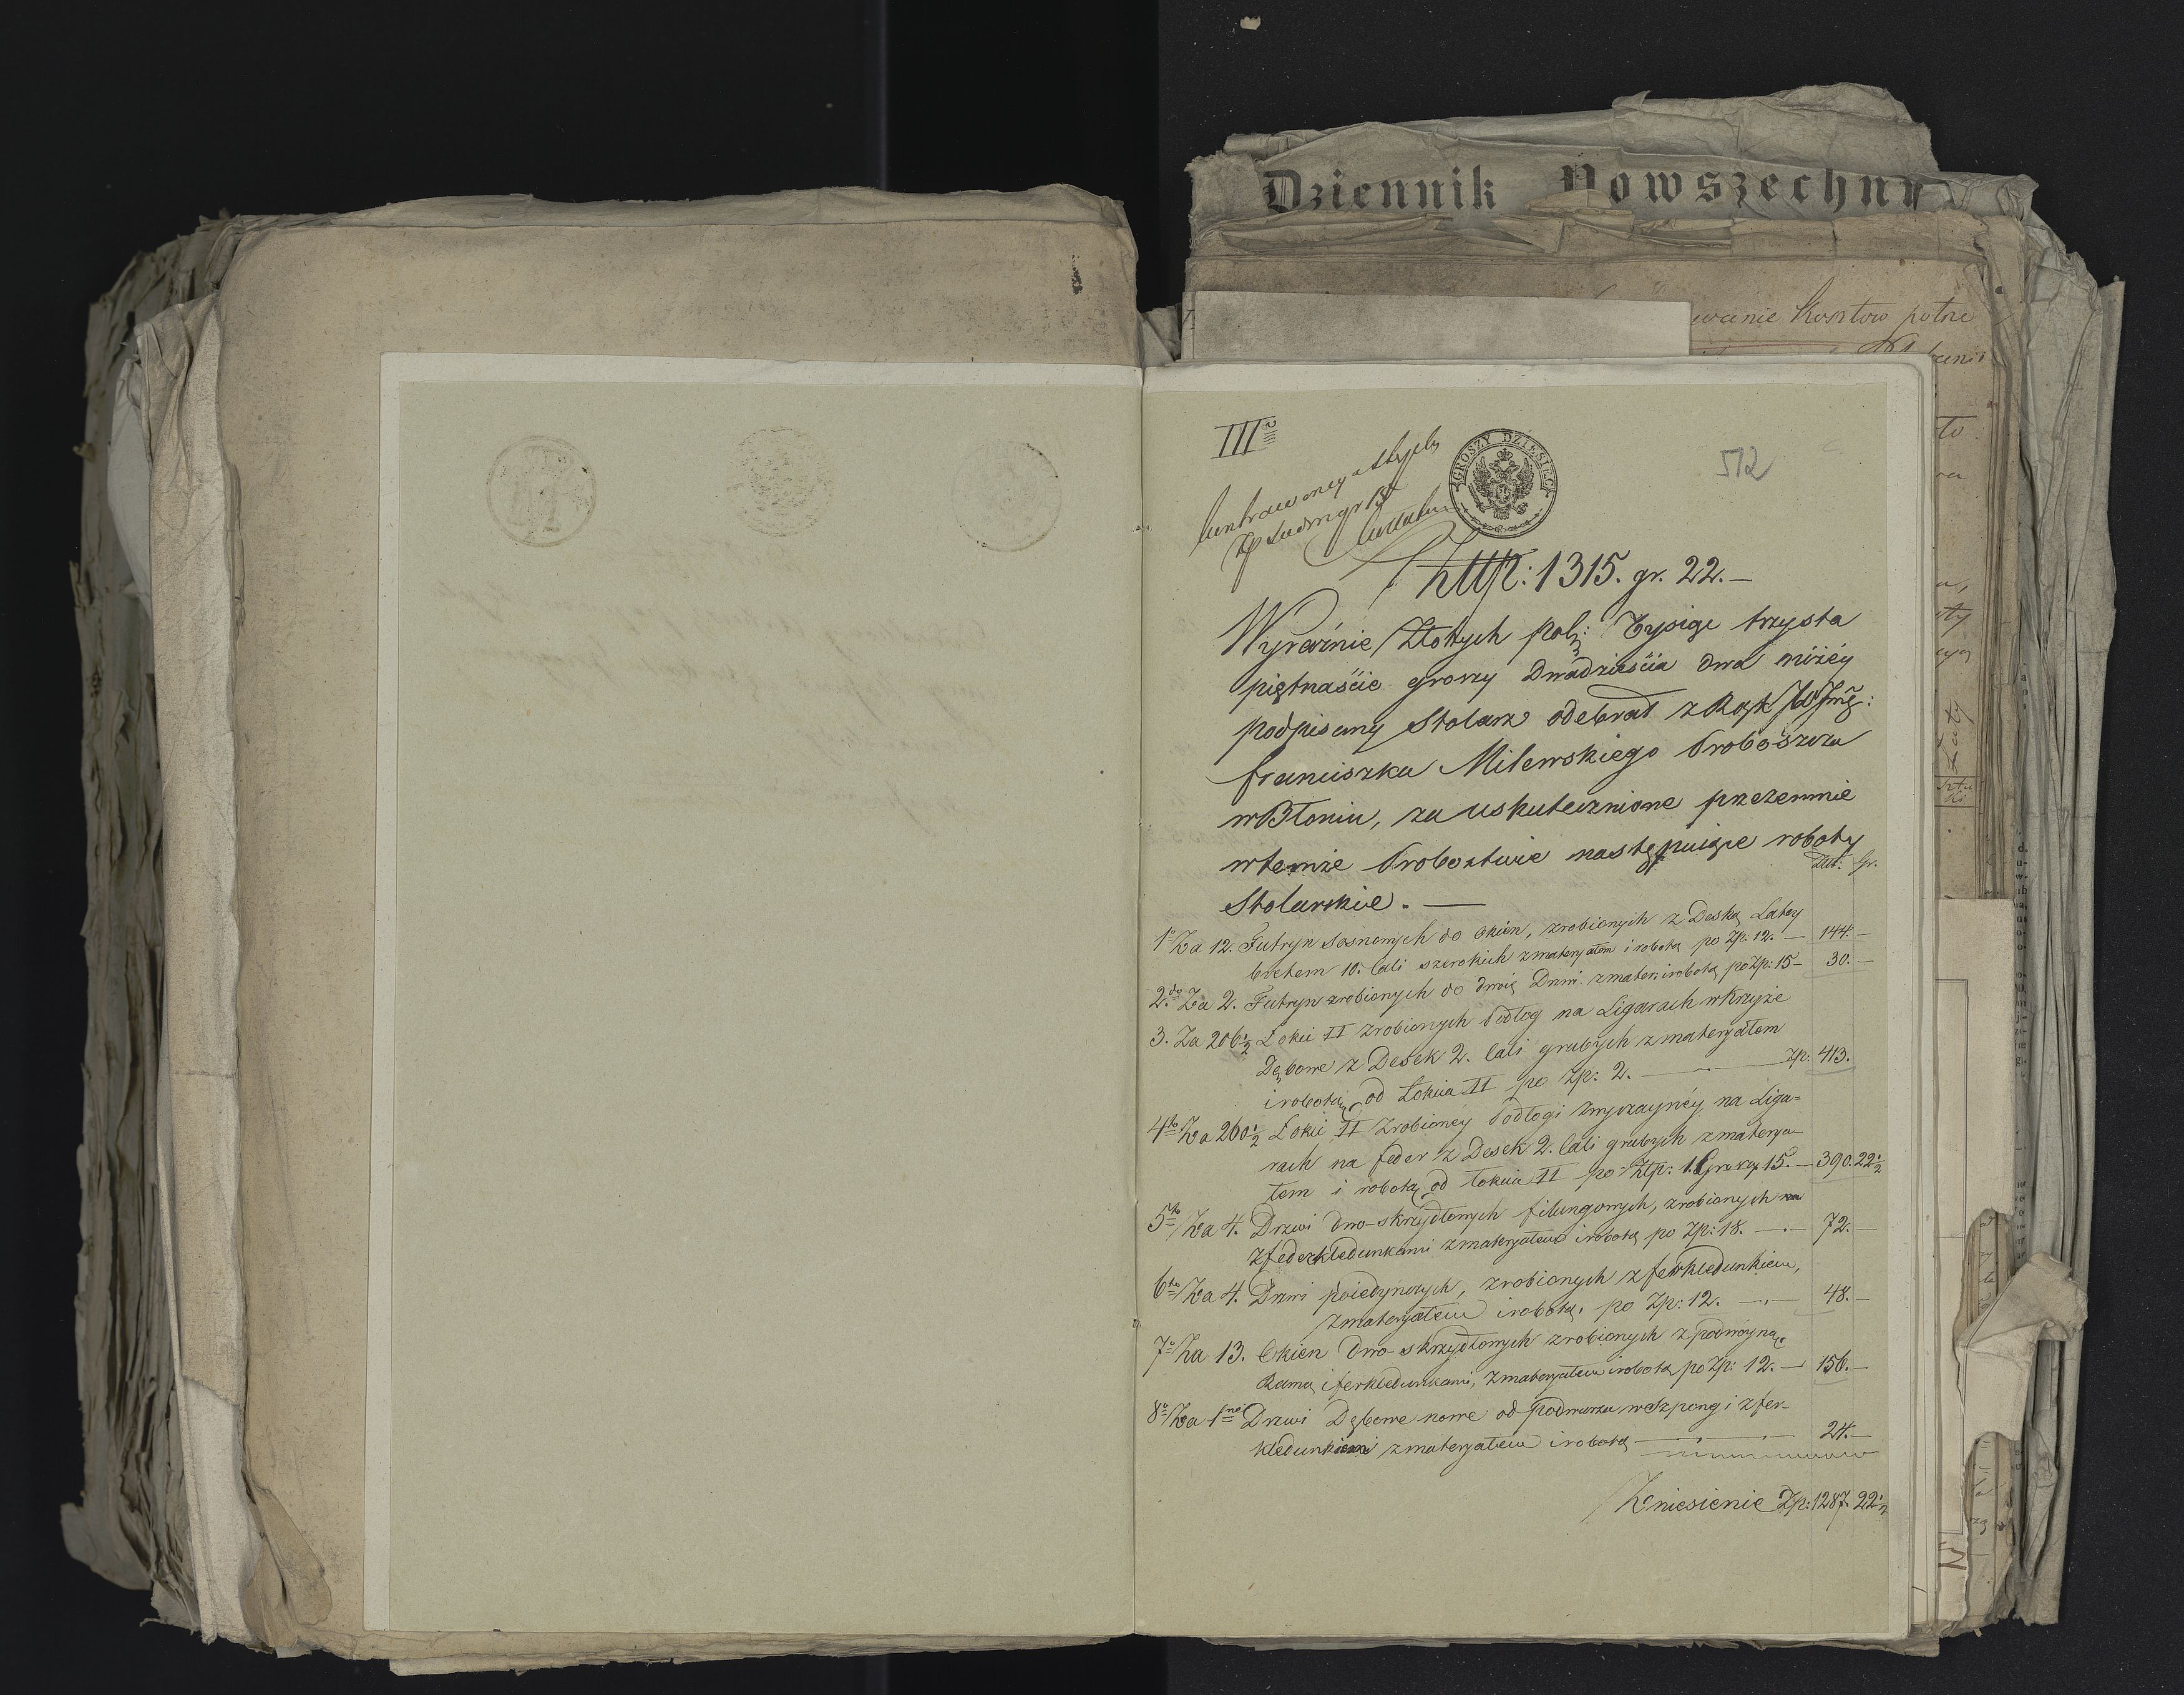 Dziennik Powszechny
wanie kosztow potrze
III
GROSZY DZIESIEC
512
gr 15
Złtp: 1315. gr. 22.—
Wyraźnie Złotych pols: Tysiąc trzysta
piętnaście groszy Dwadzieścia dwa niżéy
podpisany Stolarz odebrał z Rąk JW Jmę:
Franciszka Milewskiego Proboszcza
w Błoniu, za uskutecznione przezemnie
w temże Probostwie następuiące roboty
Złt: Gr.
Stolarskie. —
1o Za 12. Futryn sosnowych do okien, zrobionych z Deską Łatey
bretem 10. Cali szerokich z materyałem i robotą po Zp. 12. — 144.—
2do Za 2. Futryn zrobionych do dwóig Drzwi z mater: i robotą po Zp: 15 — 30.—
3. Za 206½ Łokci II zrobionych Podłóg na Ligarach w Krzyże
Dębowe z Desek 2. Cali grubych z materyałem
i robotą od Łokcia II po Zp: 2. — Zp. 413.
4to Za 260½ Łokci II Zrobioney Podłogi Zwyczaynéy na Liga=
rach na feder z Desek 2. Cali grubych z materya=
łem i robotą od łokcia II po Złp: 1. Groszy 15. — 390. 22½
5to Za 4. Drzwi dwo-skrzydłowych filungowych, zrobionych
z ferkledunkami z materyałem i robotą po Zp: 18. — 72.—
6to Za 4. Drzwi poiedynczych, zrobionych z ferkledunkiem,
z materyałem i robotą, po Zp: 12. — 48.—
7o Za 13. Okien dwo-skrzydłowych zrobionych z podwóyną
Ramą i ferkledunkami, z materyałem i robotą po Zp: 12. — 156.—
8o Za 1ne Drzwi Dębowe nowe od Podworza w Szpongi z fer-
kledunkiem z materyałem i robotą — 24.—
Wniesienie Zp: 1287. 22½